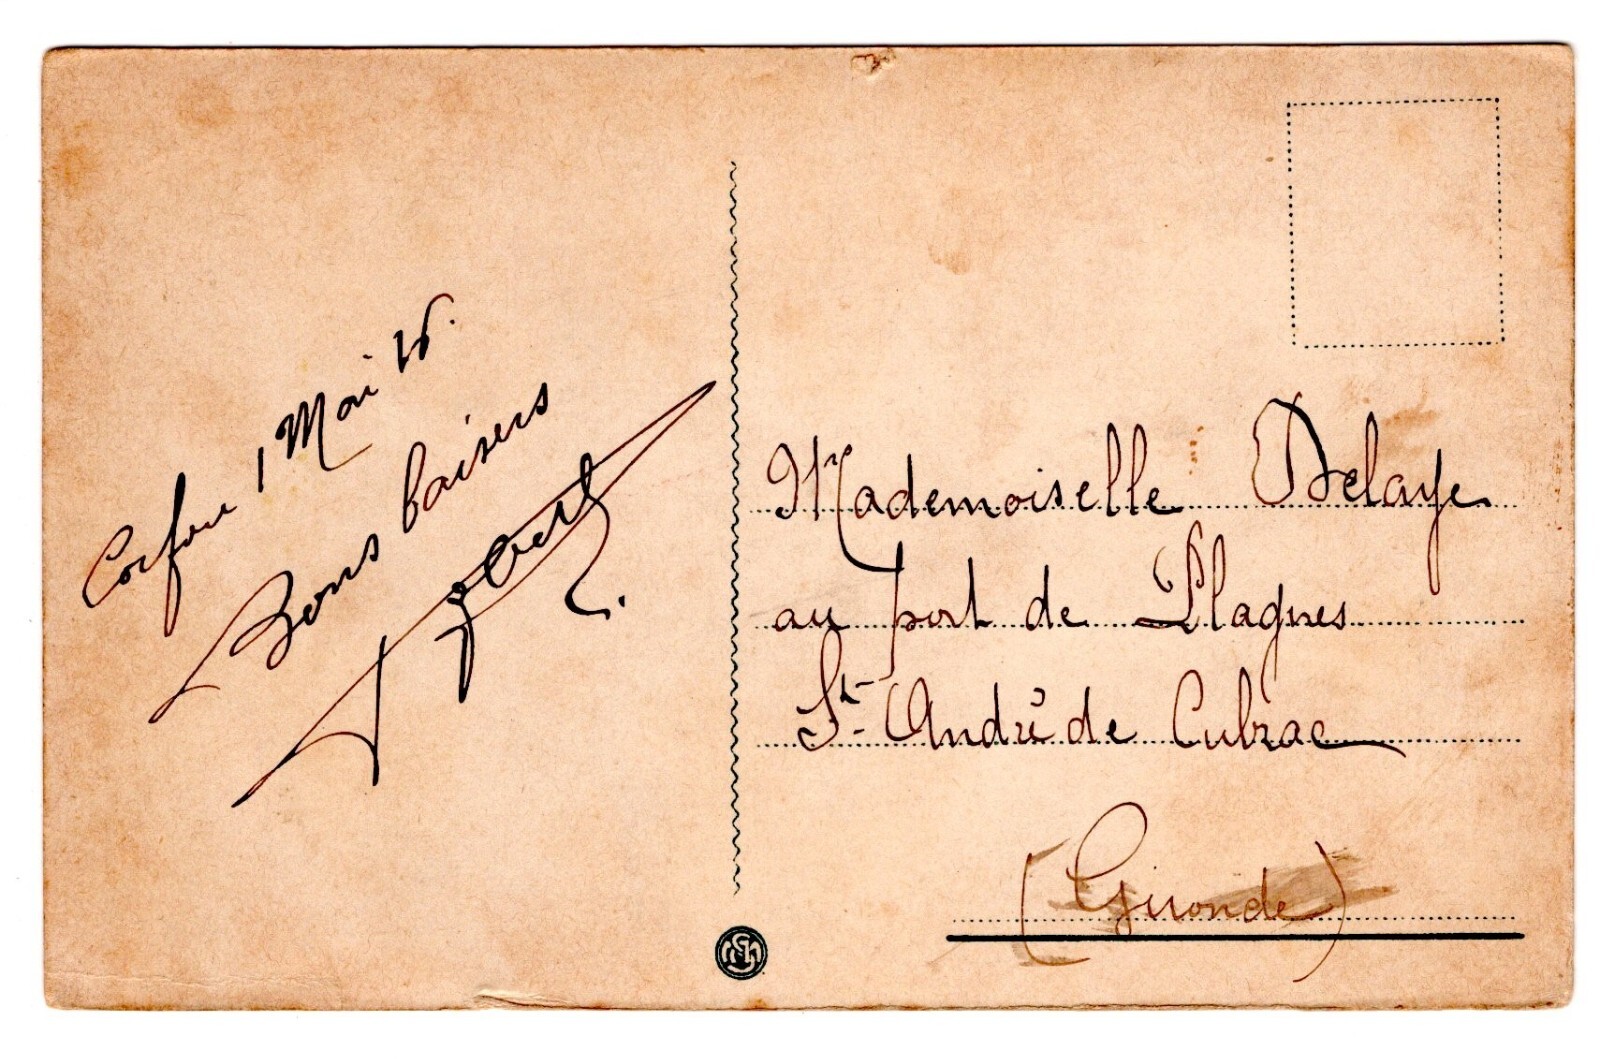 Corfou 1 Mai 16.
Bons baisers
Mademoiselle Delaye
au port de Plagnes
St- André de Cubzac
(Gironde)